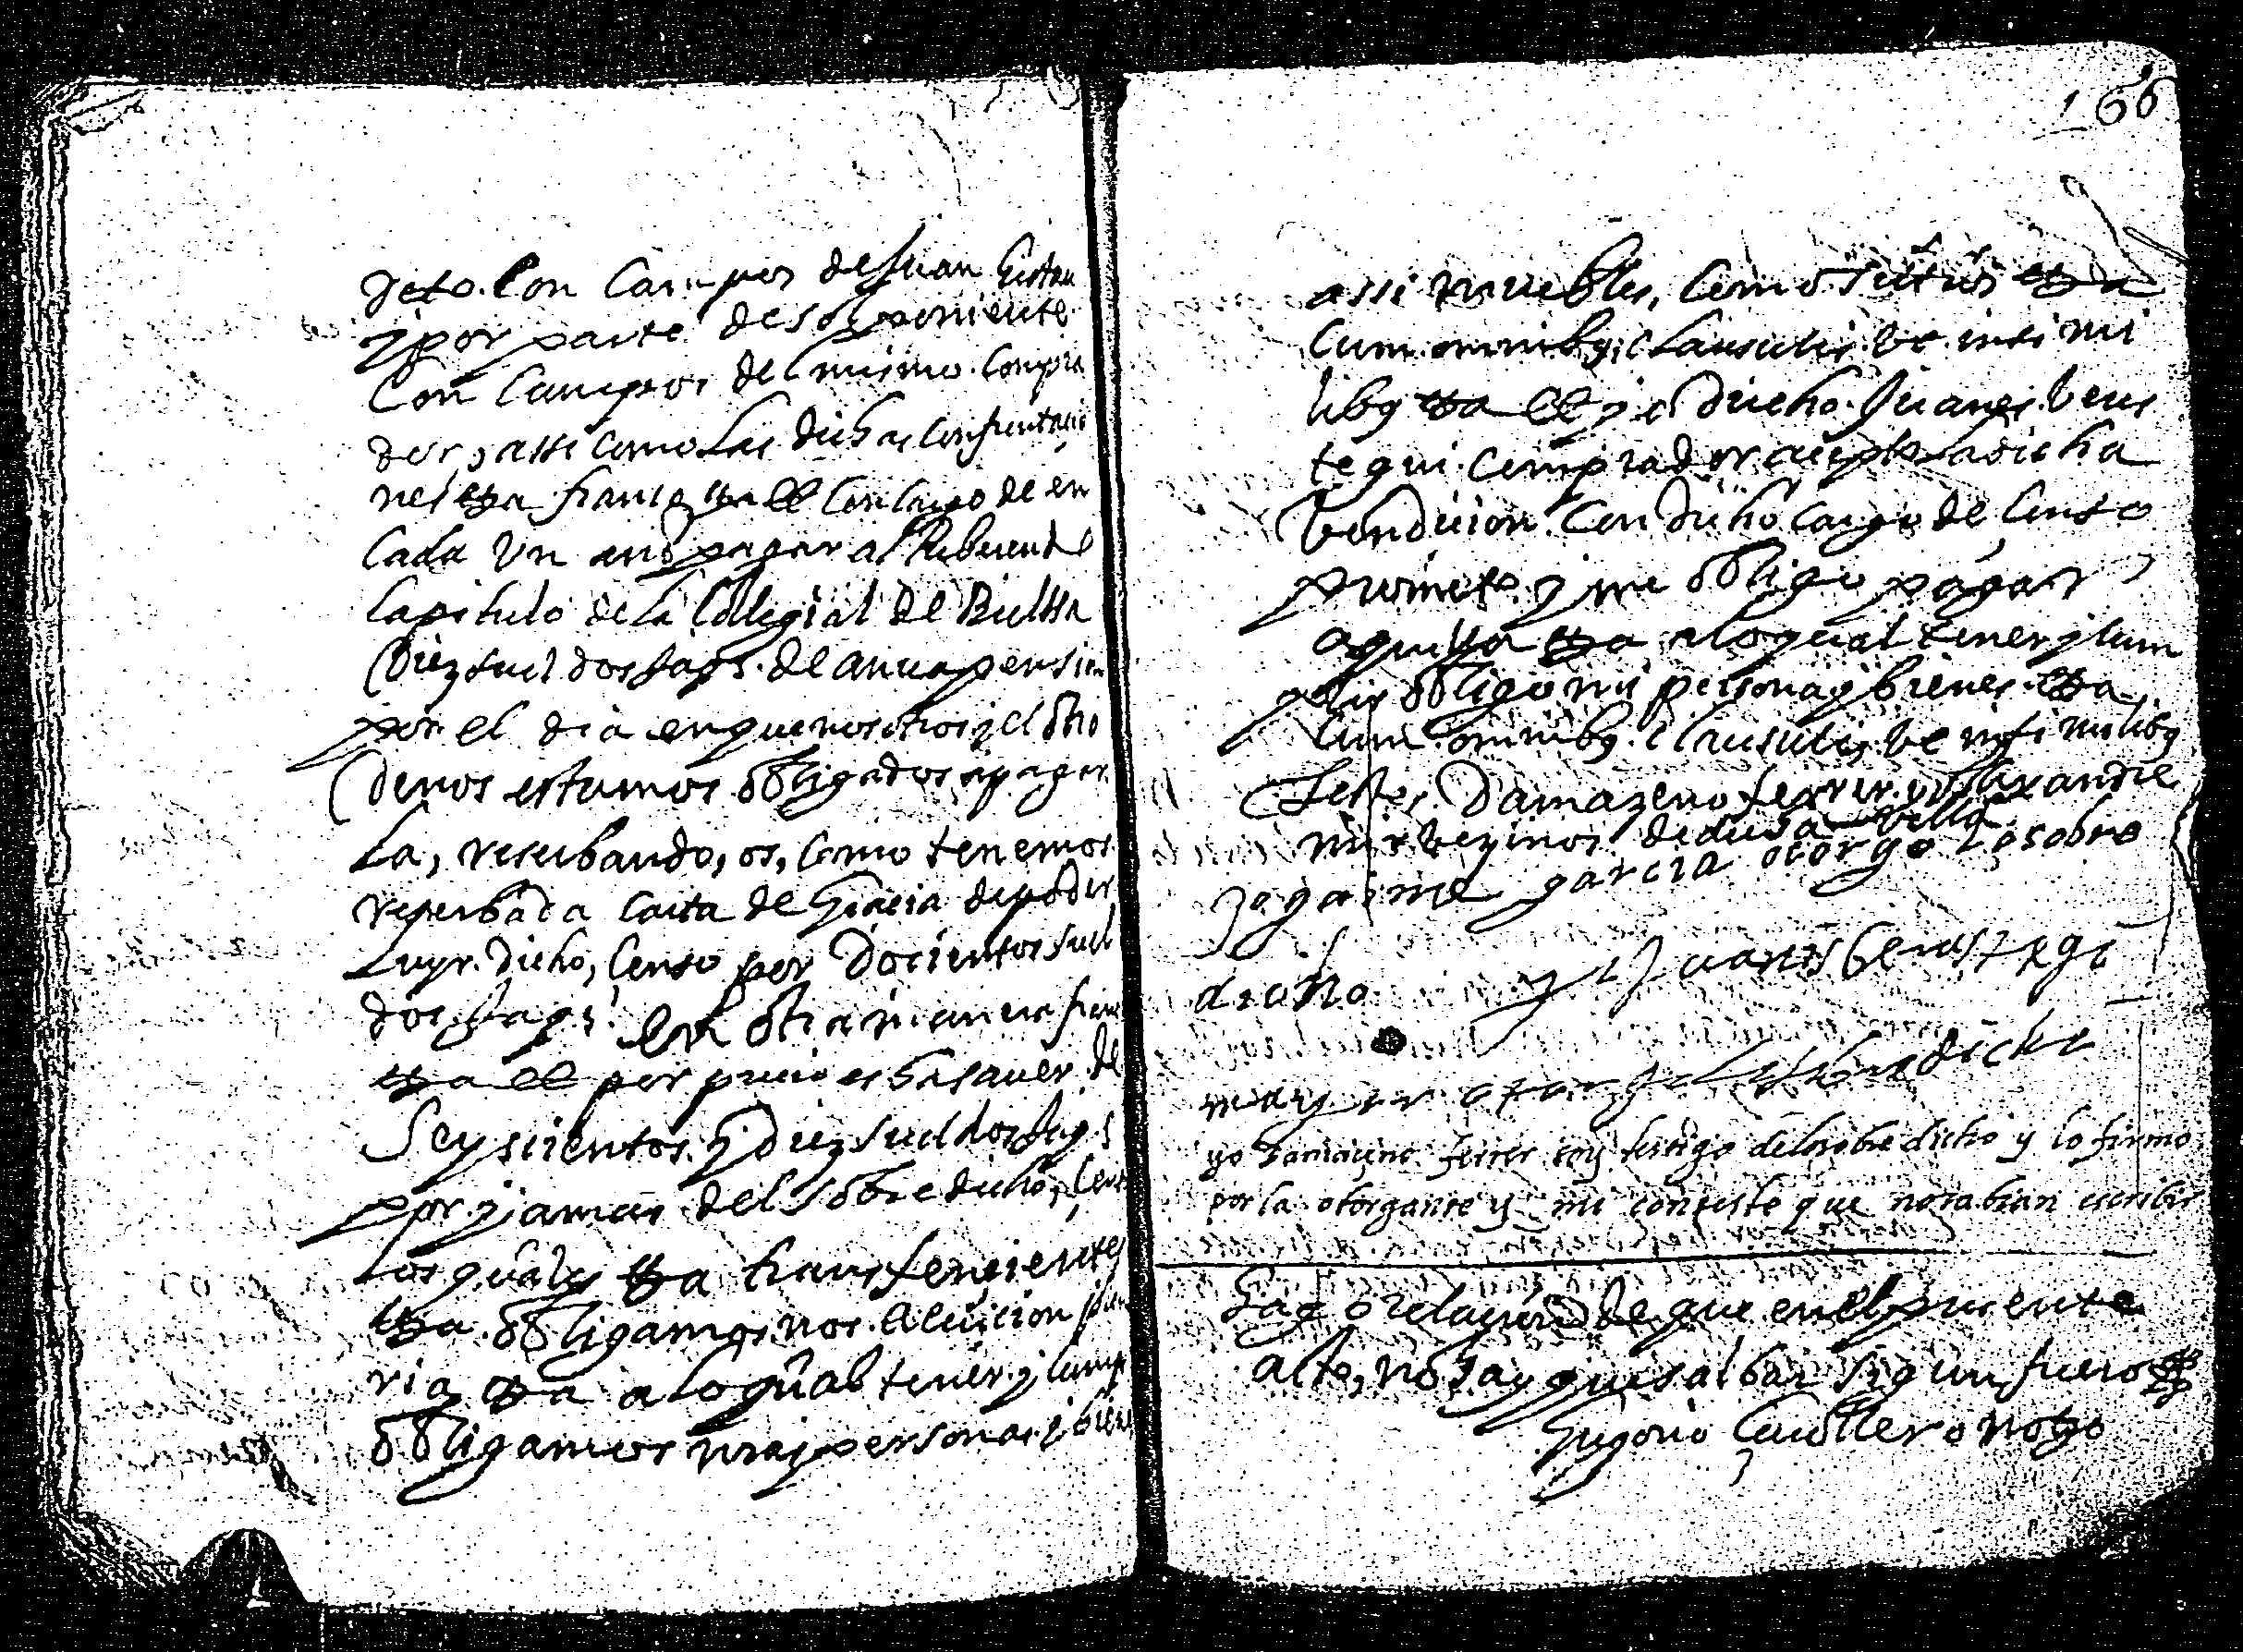 deto. con campos de Juan Gistau
y por parte de sol poniente
con campos del mismo compra
dor, assi como las dichas confrontacio
nes etza franca etza ell con cargo de en
cada un año pagar al Reberende
capitulo de la Collegial de Bielssa
diez sueldos jaqs. de anua pension
por el dia en que nosotros y el otro
de nos estamos obligados a pagar
la, reserbando, os, como tenemos
reserbada carta de Gracia de poder
luyr dicho, censo por docientos suel
dos jaqs. en otra manera franca
etza ell por precio es hasaver de
Seyscientos y diez sueldos jaqs
por jamas del sobre dicho, censo
Los quales etza transferientes
etza obligamosnos a eviccion plena
ria etza a lo qual tener y cump
obligamos nras personas y bienes
166
assi muebles, como sitios etza
cum omnibq clausulis ve in simi
libq etza ell yo dicho Juanes beros
tegui comprador acepto la dicha
bendicion con dicho cargo de censo
prometo y me obligo pagar
aquella etza a lo qual tener y cum
plir obligo mi persona y bienes etza
cum omnibq clausulis ve in similibq
Testes Damazeno ferrer y
mir vezinos de dicha villa
Jo gaime garcia otorgo lo sobre
dicho y Juanis berostegi
otorgo lo sobre dicho
yo Damaceno ferrer soy testigo de lo sobre dicho y lo firmo
por la otorgante y mi conteste que no sabian escribir
Hago relacion de que en el presente
acto, no hay que salbar segun fuero
Gregorio Cavallero noto